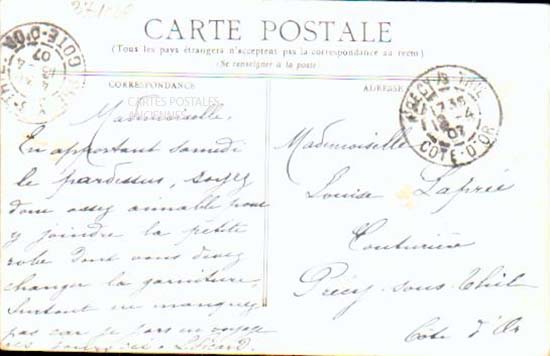 CARTE POSTALE
(Tous les pays étrangers n'acceptent pas la correspondance au recto)
(Se renseigner à la poste)
CORRESPONDANCE
CARTES POSTALES
ANCIENNES
Mademoiselle,
En apportant samedi
le pardessus, soyez
donc assez aimable pour
y joindre la petite
robe dont vous devez
changer la garniture,
Surtout ne manquez
pas car je pars en voyage
ces jours-ci
ADRESSE
Mademoiselle
Louise Laprée
Couturière
Précy-sous-Thil
Côte d'Or
PRÉCY-S-THIL
17 35
-4
07
CÔTE-D'OR
CÔTE-D'OR
07